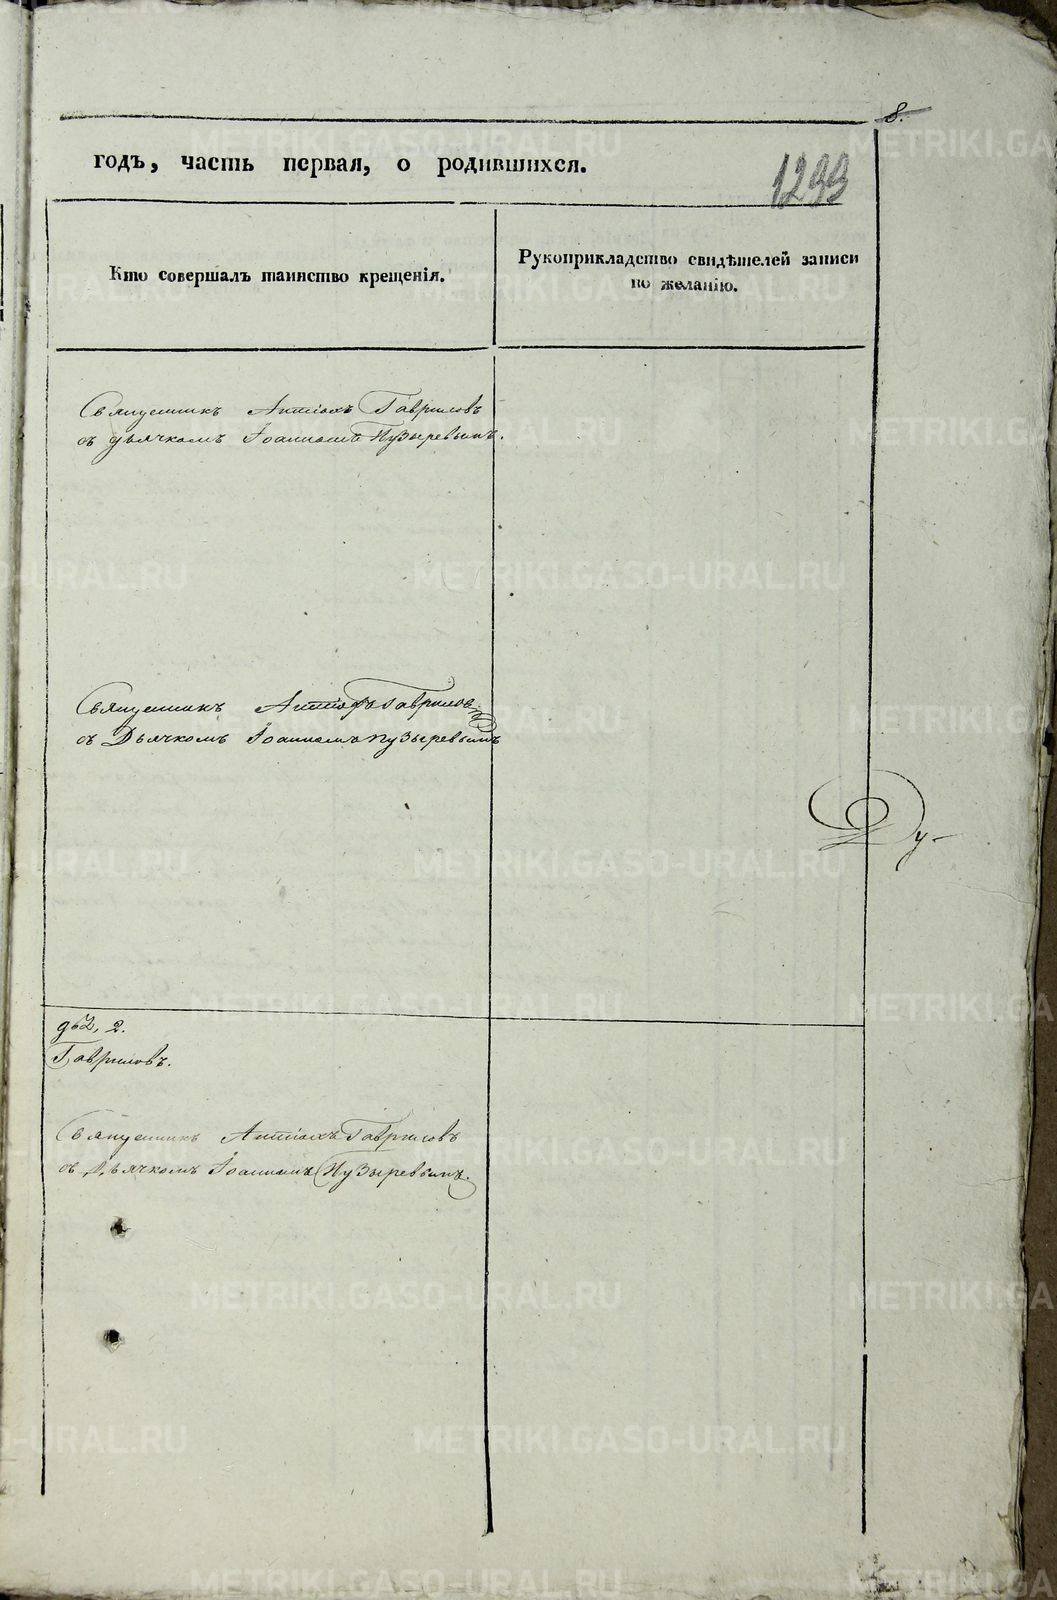 8.
годъ, часть первая, о родившихся.
1299
Кто совершалъ таинство крещенія.
Рукоприкладство свидѣтелей записи
по желанію.
Священникъ Антіохъ Гавриловъ
съ дьячкомъ Іоанномъ Пузыревымъ.
Священникъ Антіохъ Гавриловъ
съ Дьячкомъ Іоанномъ Пузыревымъ
Ду-
2.
Гавриловъ.
Священникъ Антіохъ Гавриловъ
съ Дьячкомъ Іоанномъ Пузыревымъ.
METRIKI.GASO-URAL.RU